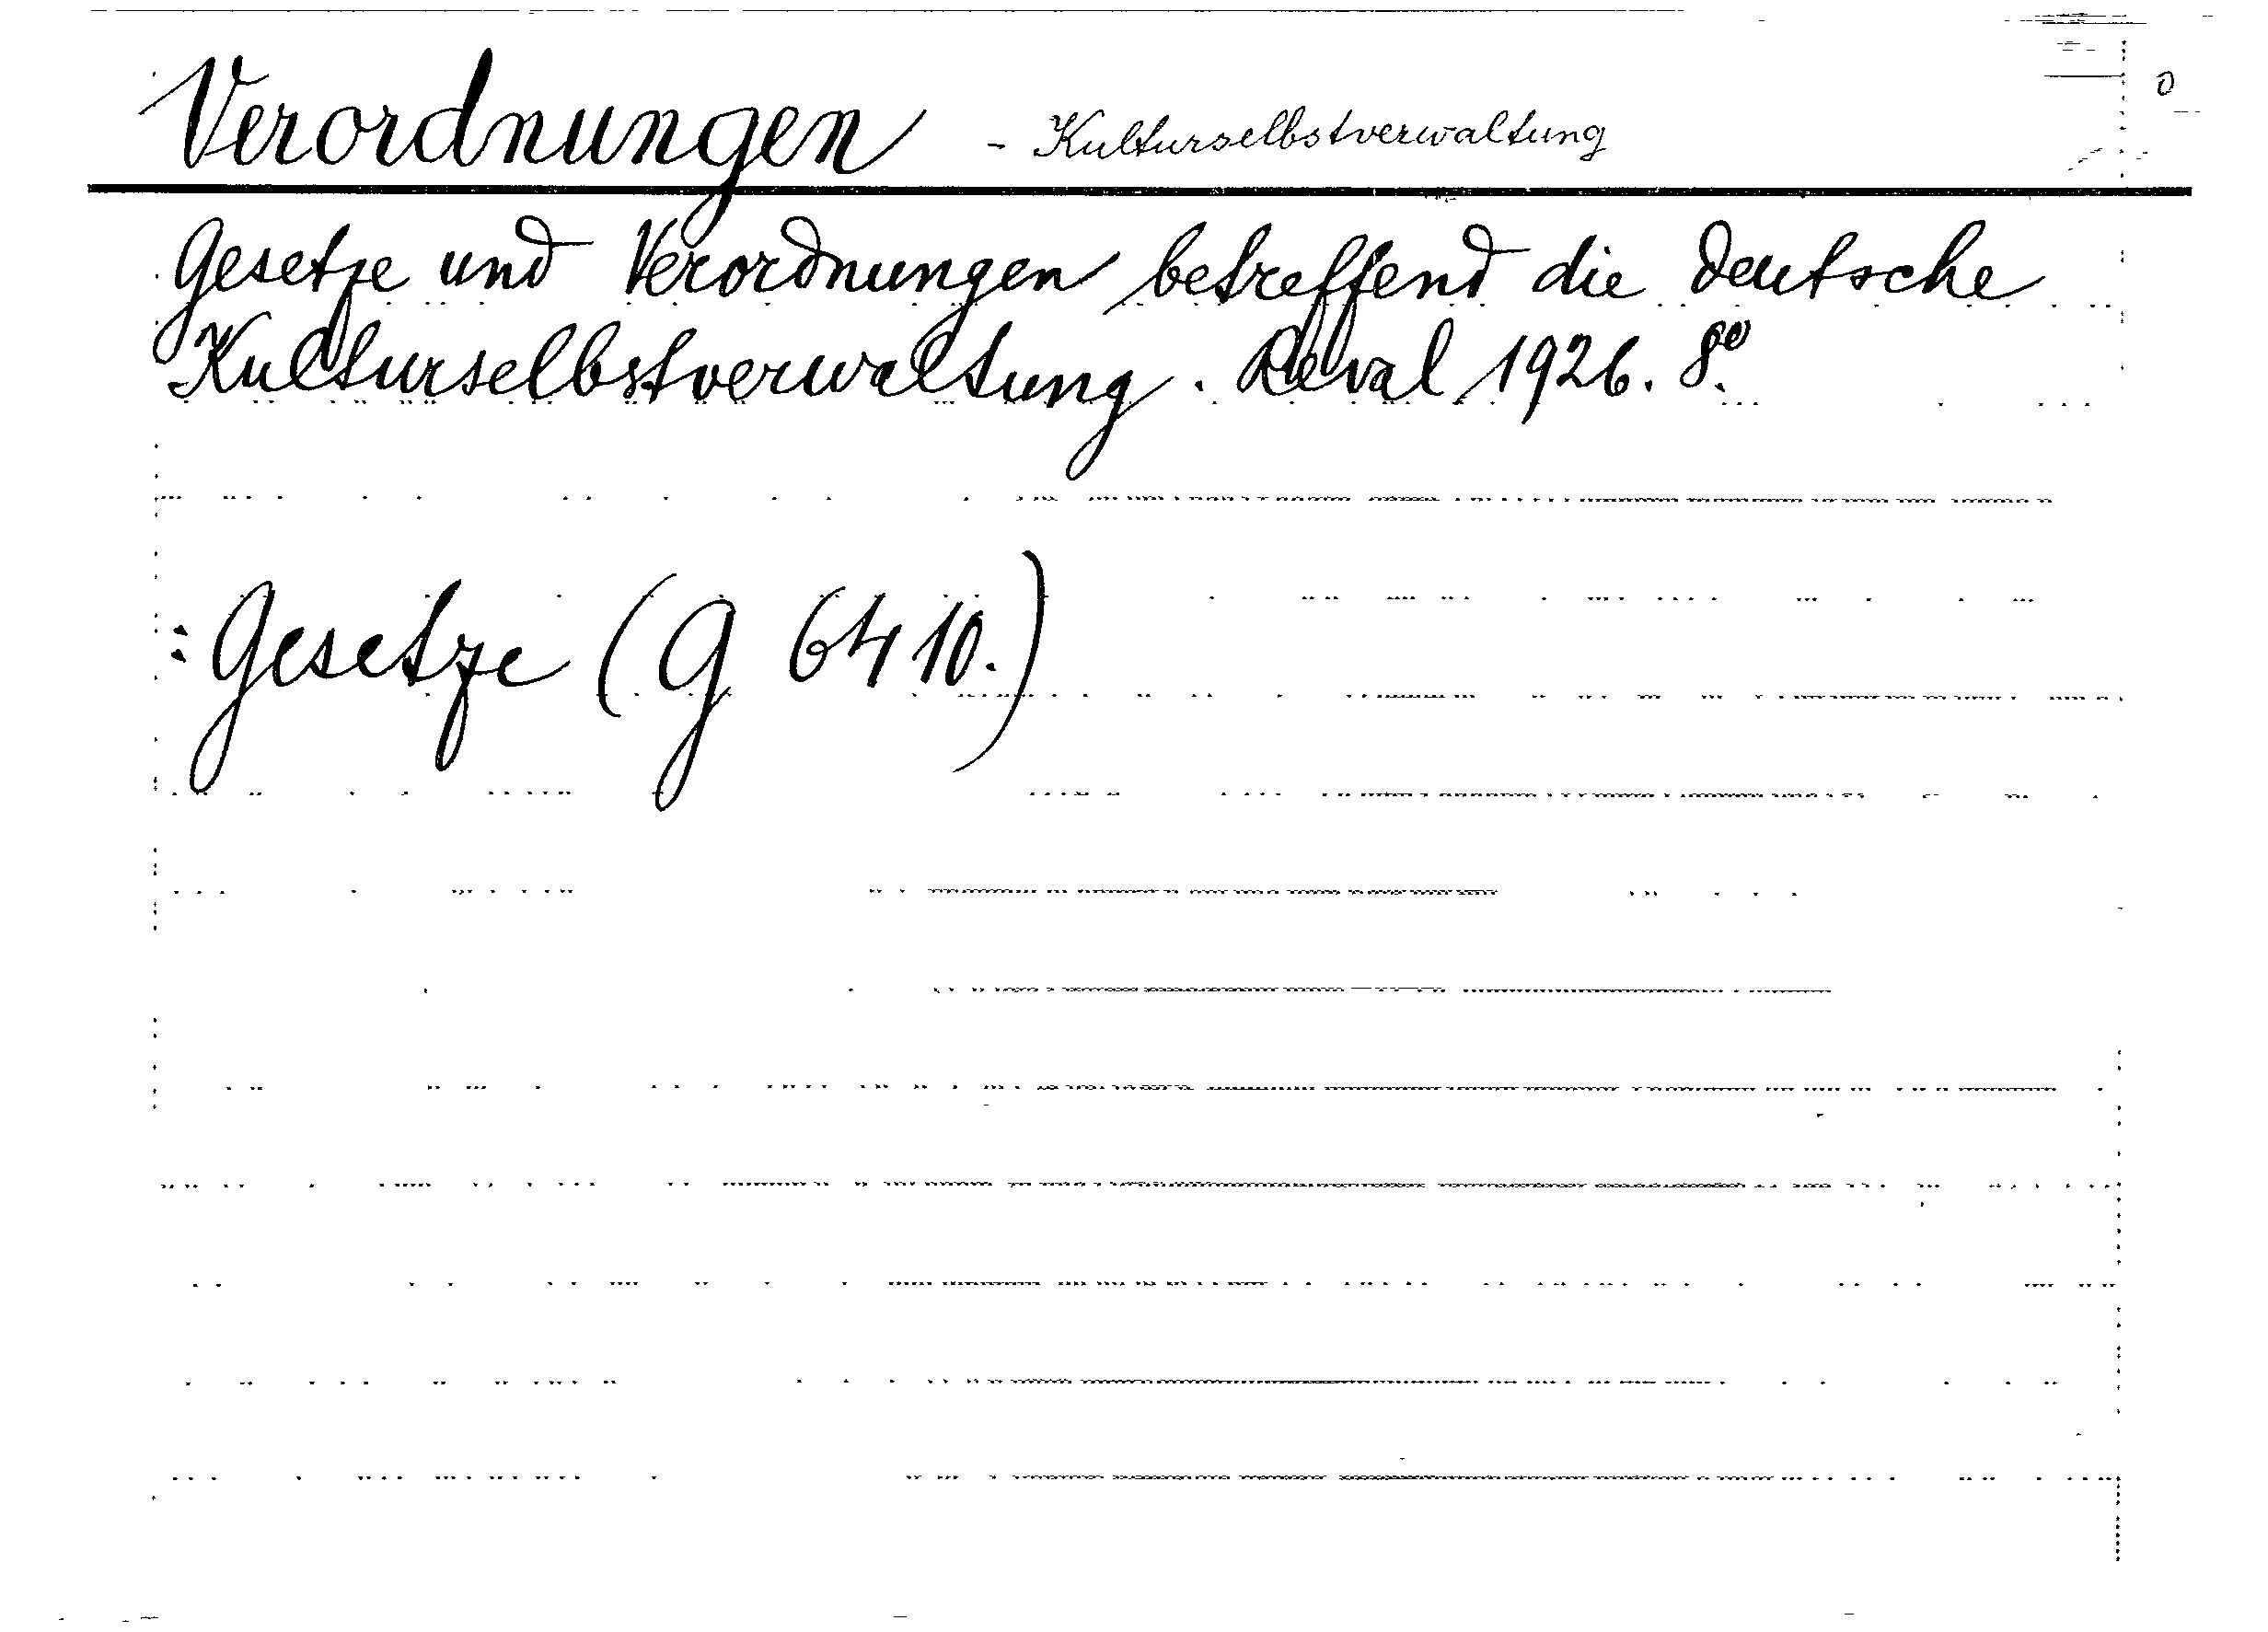 Verordnungen - Kulturselbstverwaltung
Gesetze und Verordnungen betreffend die deutsche
Kulturselbstverwaltung. Reval 1926. 8°.
: Gesetze (G 6410.)